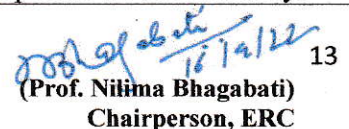 16/9/22 13
(Prof. Nilima Bhagabati)
Chairperson, ERC